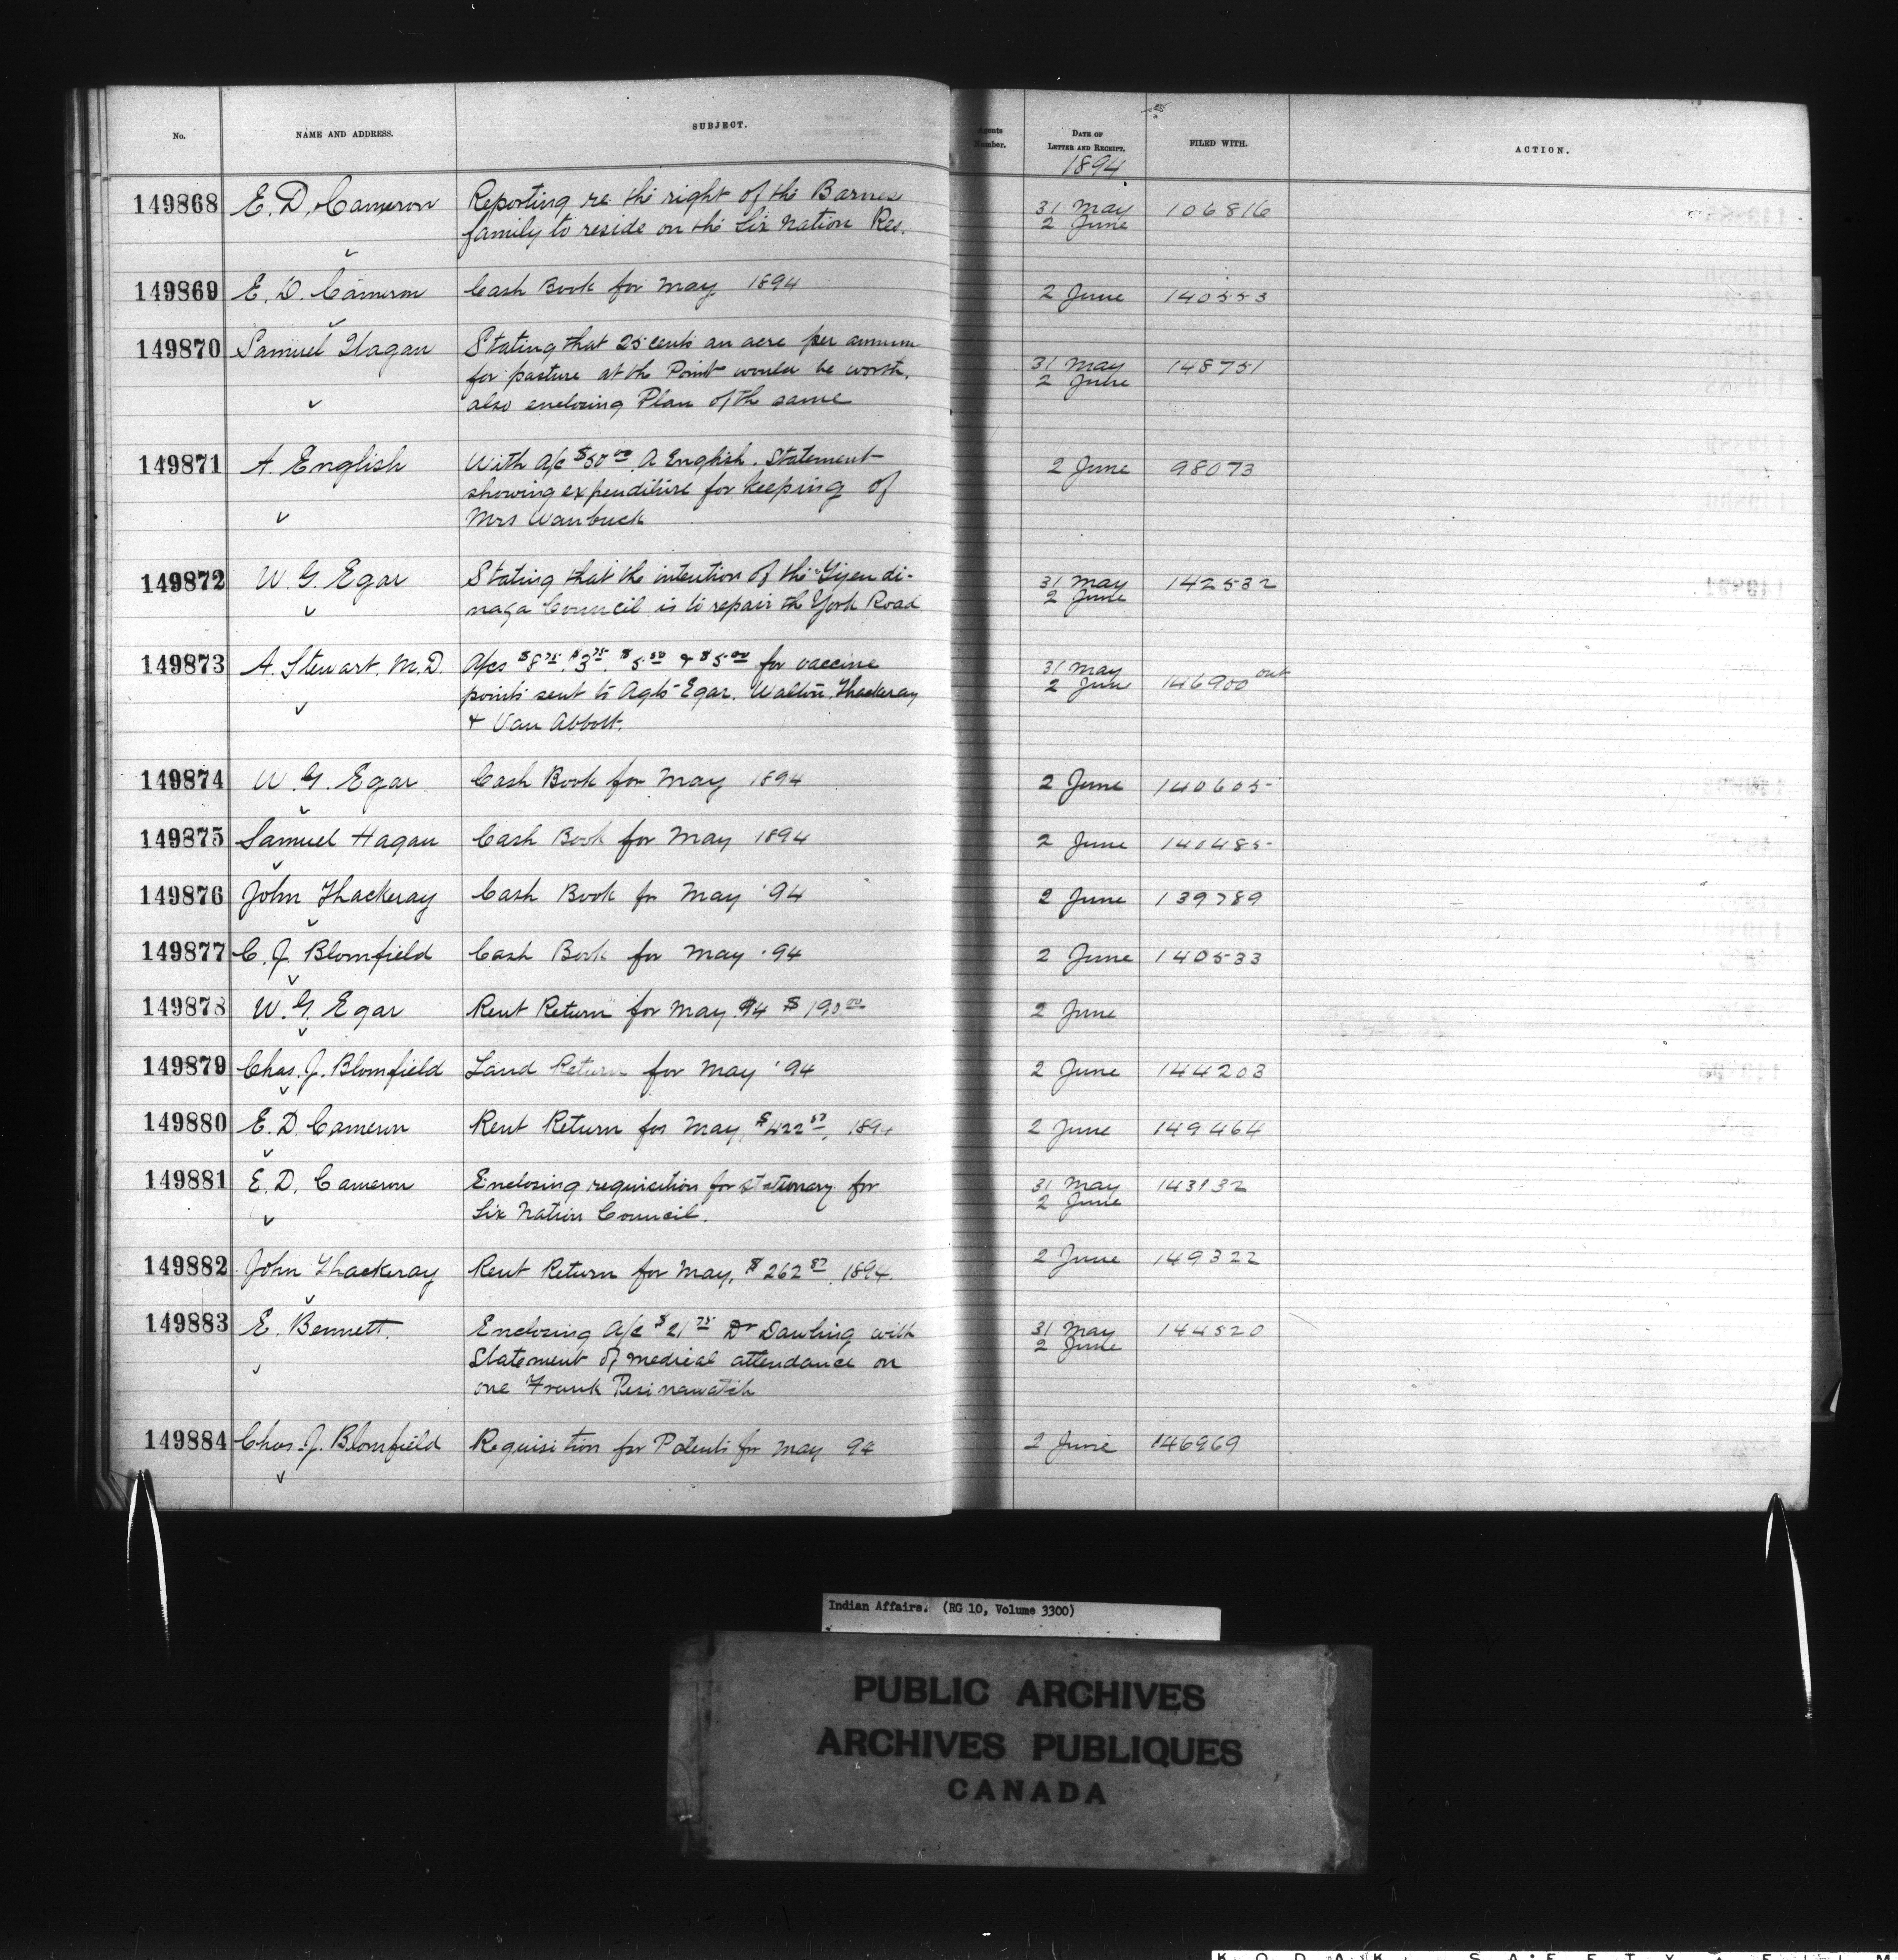 No. NAME AND ADDRESS. SUBJECT. Agents Number. DATE OF LETTER AND RECEIPT. FILED WITH. ACTION.
1894
149868 E. D. Cameron Reporting re the right of the Barnes 31 May 106816
family to reside on the Six Nation Res. 2 June
149869 E. D. Cameron Cash Book for May 1894 2 June 140553
149870 Samuel Hagan Stating that 25 cents an acre per annum 31 May 148751
for pasture at the Point would be worth. 2 June
also enclosing Plan of th same
149871 A. English With a/c $50 00 A English. Statement 2 June 98073
showing expenditure for keeping of
Mrs Wanbuck
149872 W. G. Egar Stating that the intention of the Tyendi- 31 May 142532
naga Council is to repair the York Road 2 June
149873 A. Stewart. M.D. A/cs $8 75, $3 75, $5 50 & $5 00 for vaccine 31 May
points sent to Agts Egar, Walton, Thackeray 2 June 146900 out
& Van Abbott.
149874 W. G. Egar Cash Book for May 1894 2 June 140605
149875 Samuel Hagan Cash Book for May 1894 2 June 140485
149876 John Thackeray Cash Book for May '94 2 June 139789
149877 C. J. Blomfield Cash Book for May '94 2 June 140533
149878 W. G. Egar Rent Return for May 94 $190 00 2 June
149879 Chas. J. Blomfield Land Return for May '94 2 June 144203
149880 E. D. Cameron Rent Return for May, $422 50, 1894 2 June 149464
149881 E. D. Cameron Enclosing requisition for stationary for 31 May 143132
Six Nation Council. 2 June
149882 John Thackeray Rent Return for May, $262 87, 1894. 2 June 149322
149883 E. Bennett. Enclosing A/c $21 75 Dr Dowling with 31 May 144520
Statement of medical attendance on 2 June
one Frank Pesinawatch
149884 Chas. J. Blomfield Requisition for Patents for May 94 2 June 146969
Indian Affairs. (RG 10, Volume 3300)
PUBLIC ARCHIVES
ARCHIVES PUBLIQUES
CANADA
KODAK SAFETY FILM